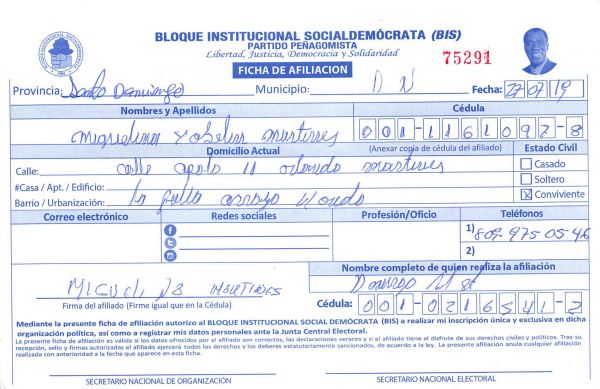 BLOQUE INSTITUCIONAL SOCIALDEMÓCRATA (BIS)
PARTIDO PEÑAGOMISTA
Libertad, Justicia, Democracia y Solidaridad
75291
FICHA DE AFILIACION
Provincia: Santo Domingo Municipio: D N Fecha: 27/07/19
Nombres y Apellidos Cédula
Martires 001-1161097-8
Domicilio Actual (Anexar copia de cédula del afiliado) Estado Civil
Calle: calle apolo 11 martires Casado
#Casa / Apt. / Edificio: Soltero
Barrio / Urbanización: la arroyo Hondo X Conviviente
Correo electrónico Redes sociales Profesión/Oficio Teléfonos
1) 809-975 05-46
2)
Nombre completo de quien realiza la afiliación
Domingo
Firma del afiliado (Firme igual que en la Cédula)
Cédula: 001-0216541-2
Mediante la presente ficha de afiliación autorizo al BLOQUE INSTITUCIONAL SOCIAL DEMÓCRATA (BIS) a realizar mi inscripción única y exclusiva en dicha
organización política, asi como a registrar mis datos personales ante la Junta Central Electoral.
La presente ficha de afiliación es válida si los datos ofrecidos por el afiliado son correctos, las declaraciones veraces y si el afiliado tiene el disfrute de sus derechos civiles y políticos. Tras su
recepción, sello y firmas autorizadas el afiliado ejercerá todos los derechos y los deberes estatutariamente sancionados, de acuerdo a la ley. La presente afiliación anula cualquier afiliación
realizada con anterioridad a la fecha que aparece en esta ficha.
SECRETARIO NACIONAL DE ORGANIZACIÓN SECRETARIO NACIONAL ELECTORAL